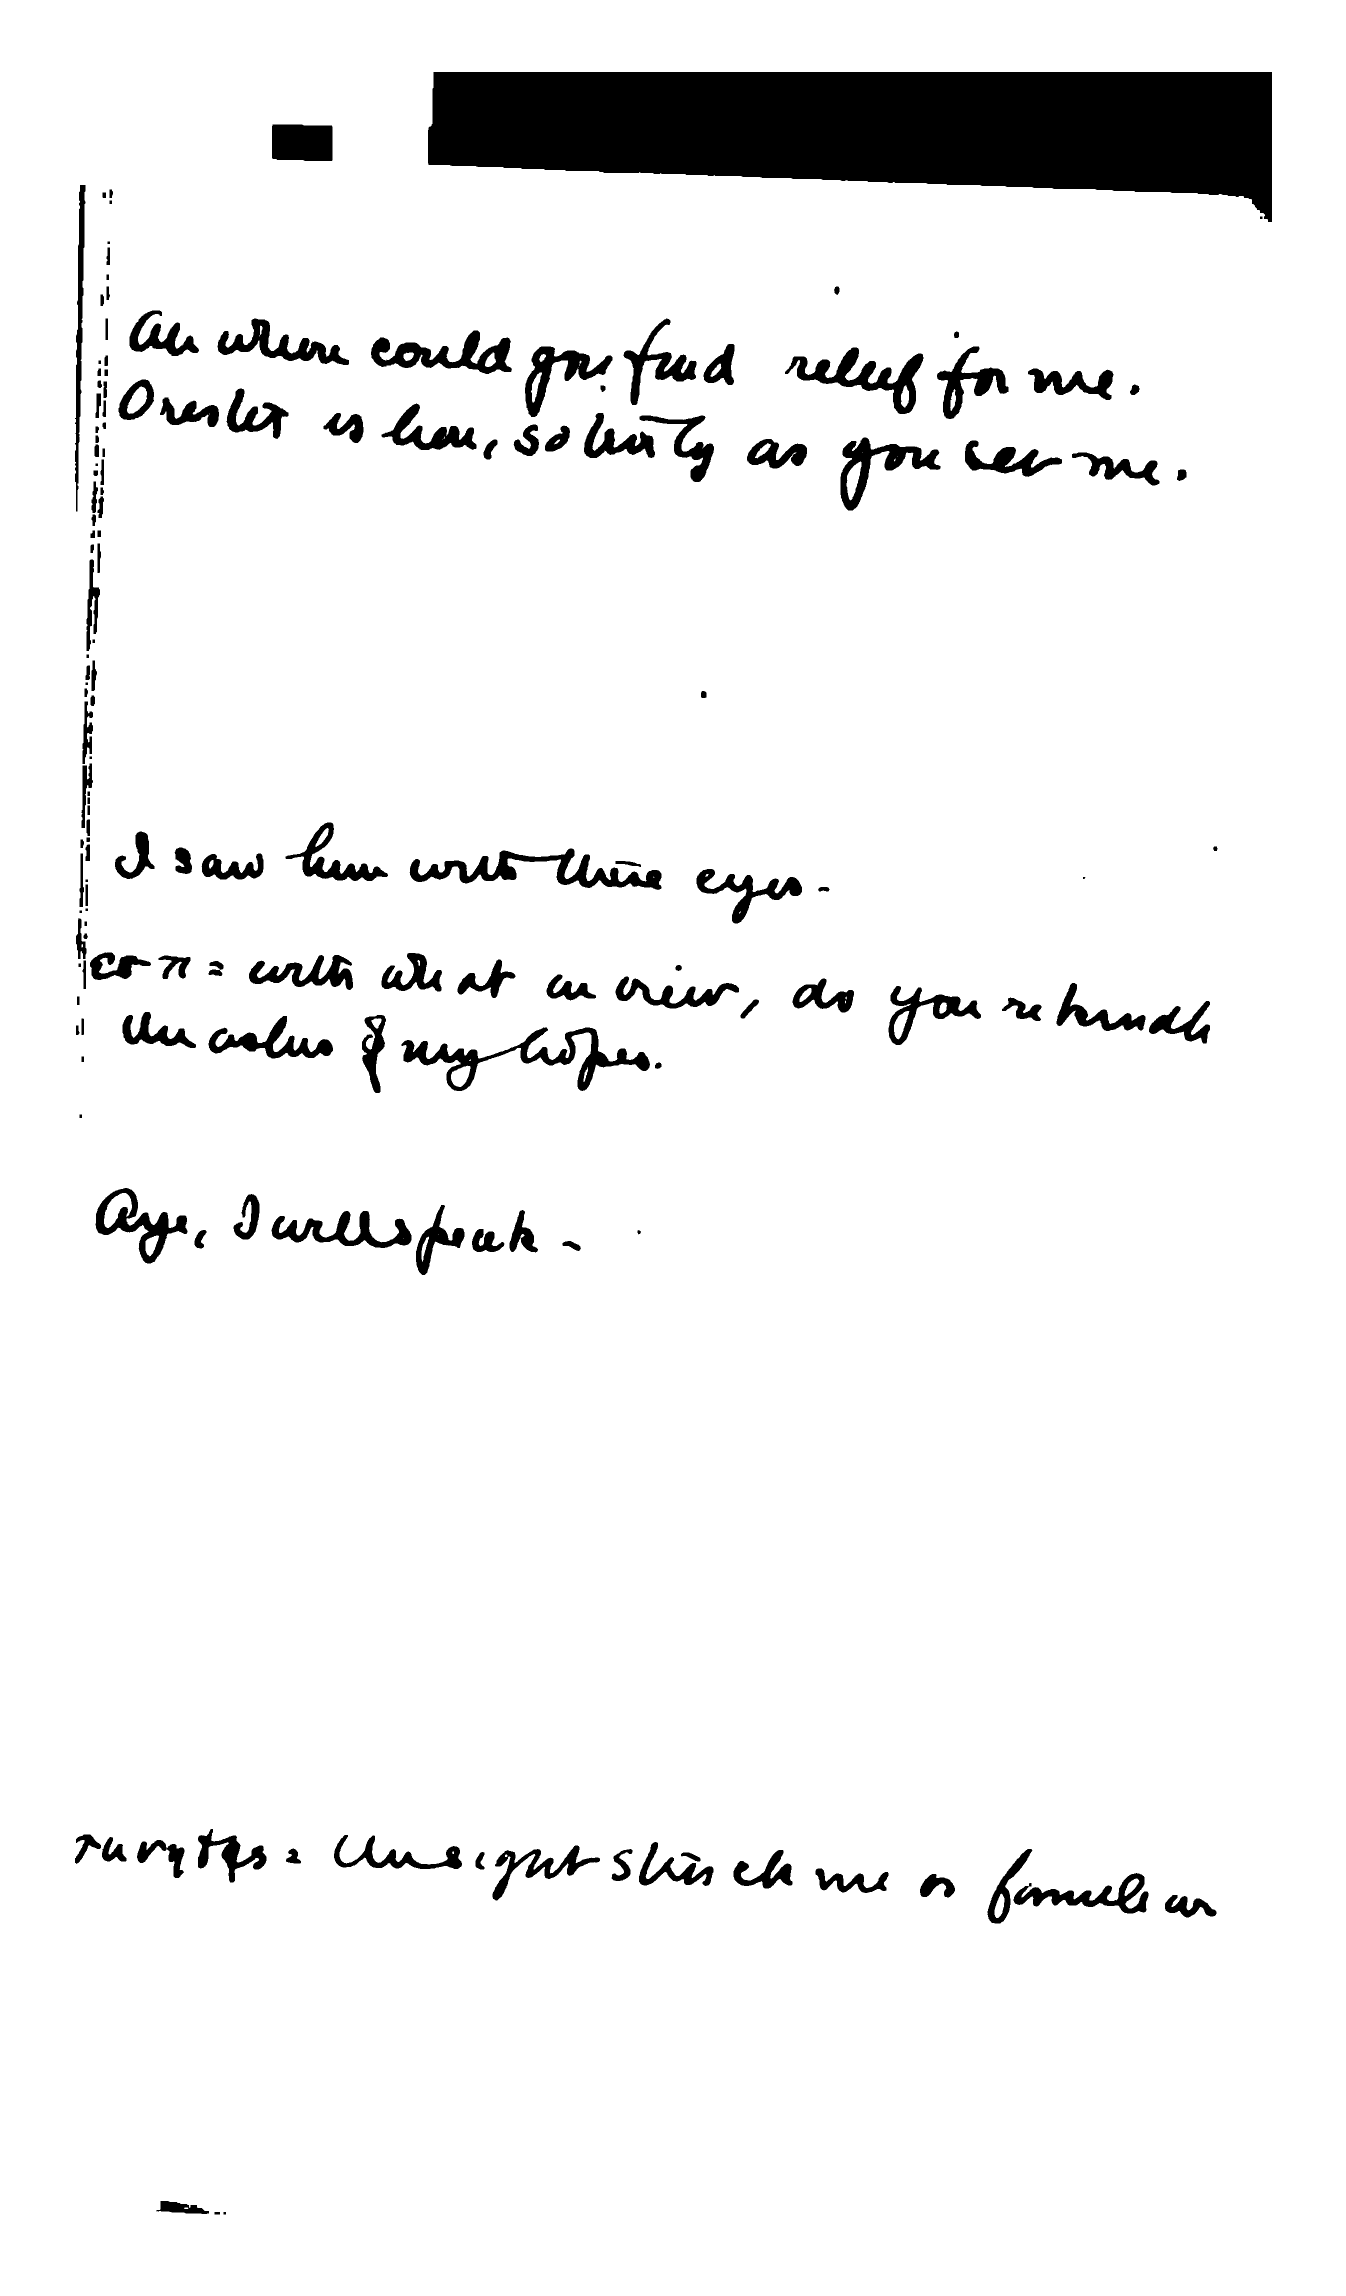 Ah where could you find relief for me.
Orestes is here, so truly as you see me.
I saw him with these eyes -
ες τι = with what in view, do you rekindle
the ashes of my hopes.
Aye, I will speak -
= the sight struck me as familiar